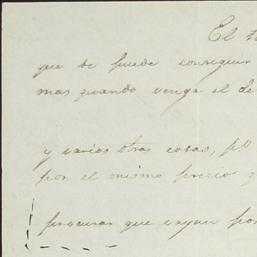 El
que se puede conseguir
mas quando venga el de
y varias otras cosas, p.o
por el mismo precio q
procurar que vayan por